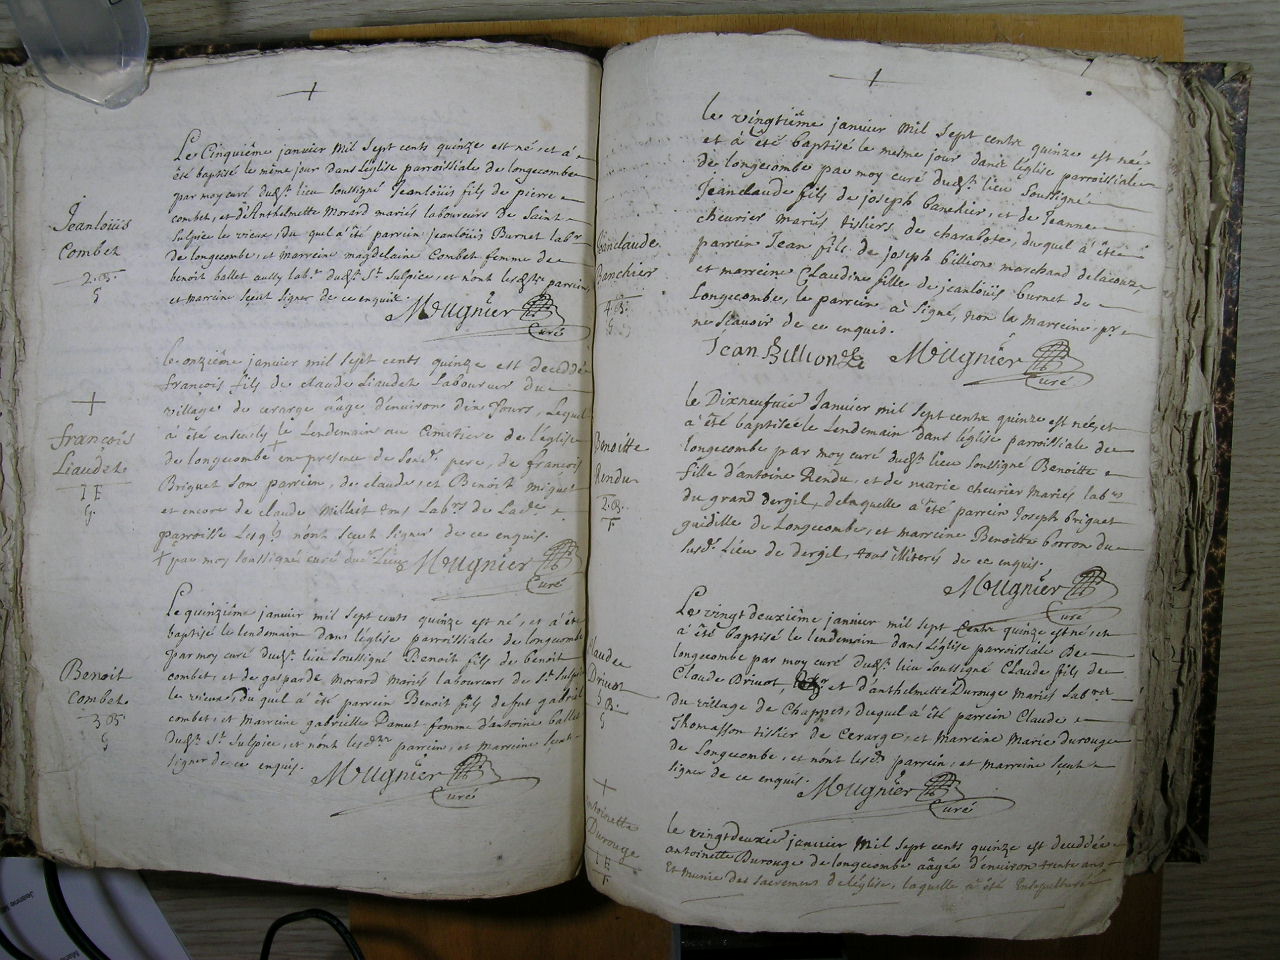 Le Cinquiême janvier mil sept cents quinze est né, et à
été baptisé le même jour dans l'église parroissiale de longecombe
par moy curé dud.t lieu soussigné Jeanloüis fils de pierre
combet, et d'Anthelmette Morard mariés laboureurs de Saint
Sulpice le vieux, du quel a été parrein jeanloüis Burnet lab.r
de longecombe, et marreine magdelaine Combet femme de
benoit ballet aussy lab.r dud.t St. Sulpice, et n'ont lesd.ts parrein,
et marreine sçeut signer de ce enquis
Mugniér
Curé
Jeanloüis
Combet
2. B.
G
le onziéme janvier mil sept cents quinze est deceddé
françois fils de claude Liaudet Laboureur du
village de cerarge ââge d'environ dix Jours, Lequel
à été enseuely le Lendemain au Cimetiere de l'église
de longecombe + en presence de sond. pere, de francois
Briguet son parrein, de claude, et Benoit miguet
et encore de claude millait tous Lab.rs de Lad.e
parroisse Lesq.s n'ont sçeut signer de ce enquis.
+ par moy soussigné curé dud. Lieu
Mugniér
Curé
françois
Liaudet
1 E
G
Le quinziéme janvier mil sept cents quinze est né, et à été
baptisé le lendemain dans l'église parroissiale de longecombe
par moy curé dud.t lieu soussigné Benoit fils de benoit
combet, et de gasparde morard mariés laboureurs de St. Sulpice
le vieux, du quel à été parrein Benoit fils de fut gabriel
combet, et marreine gabrielle Pamet femme d'antoine ballet
dud.t St. Sulpice, et n'ont lesd. parrein, et marreine sçeut
signer de ce enquis.
Mugniér
Curé
Benoit
combet
3. B.
G
7
le vingtiéme janvier mil sept cents quinze est né
et à été baptisé le mesme jour dans l'église parroissiale
de longecombe par moy curé dud.t lieu soussigné
Jeanclaude fils de joseph banchier, et de Jeanne
cheurier mariés tissiers de charabote, duquel à été
parrein Jean fils de joseph billion marchand de lacouz,
et marreine Claudine fille de jeanloüis burnet de
Longecombe, le parrein à signé, non la marreine p.r
ne sçavoir de ce enquis.
Jean Billion
Mugniér
Curé
Jeanclaude
Banchier
4. B.
G
le Dixneufuié Janvier mil sept cents quinze est née, et
à été baptisée le Lendemain dans l'église parroissiale de
longecombe par moy curé dud.t lieu soussigné Benoitte
fille d'antoine Rendu, et de marie cheurier Mariés lab.rs
du grand dergil, delaquelle à été parrein Joseph briguet
guidille de Longecombe, et marreine Benoitte borron du
susd. Lieu de dergil, tous illiterés de ce enquis.
Mugniér
Curé
Benoitte
Rendu
2. B.
F
Le vingt deuxiéme janvier mil sept cents quinze est né, et
à été baptisé le lendemain dans l'église parroissiale de
longecombe par moy curé dud.t lieu soussigné Claude fils de
Claude Brivot, et d'anthelmette Durouge Mariés Lab.rs
du village de Chappes, duquel a été parrein Claude
Thomasson tissier de Cerarge, et Marreine Marie durouge
de Longecombe, et n'ont lesd. parrein, et marreine sçeut
signer de ce enquis.
Mugniér
Curé
Claude
Brivot
3. B.
G
le vingtdeuxié janvier Mil sept cents quinze est deceddée
antoinette Durouge de longecombe ââgée d'environ trente ans
Et munie des sacremens de l'église, laquelle à été
antoinette
Durouge
1 E
F